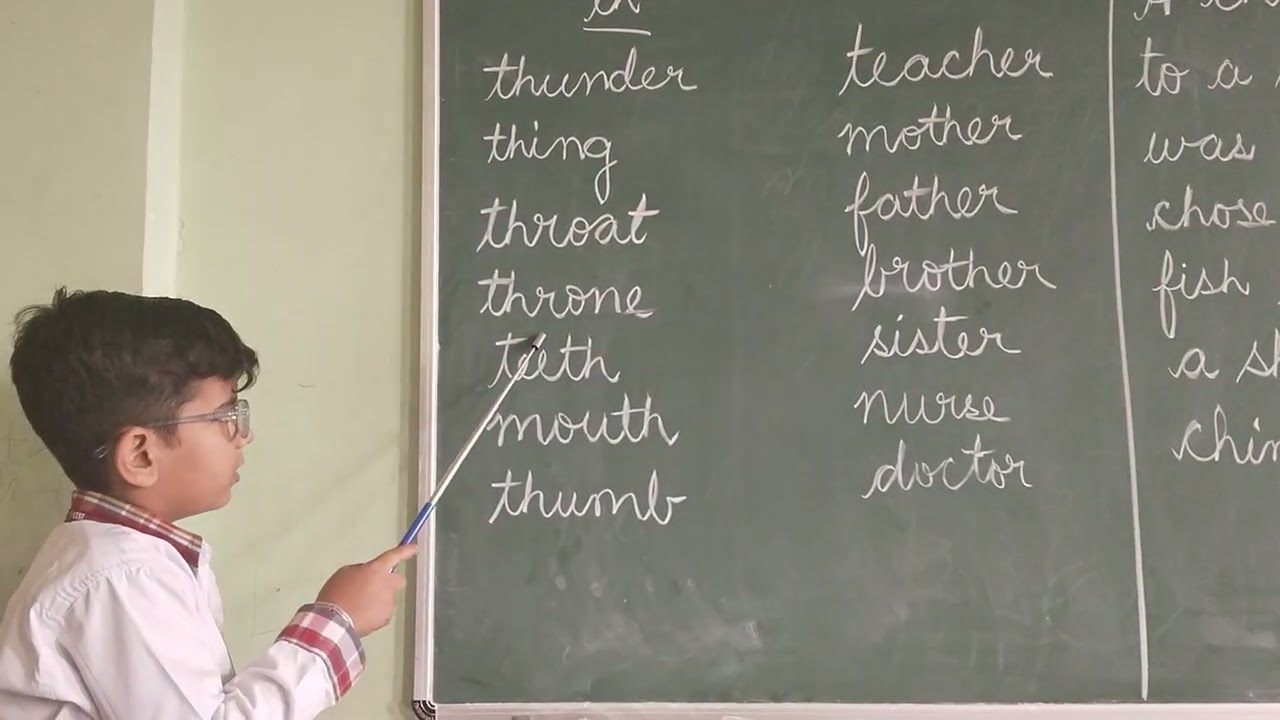 thunder
thing
throat
throne
teeth
mouth
thumb
teacher
mother
father
brother
sister
nurse
doctor
to a
was
chose
fish
a